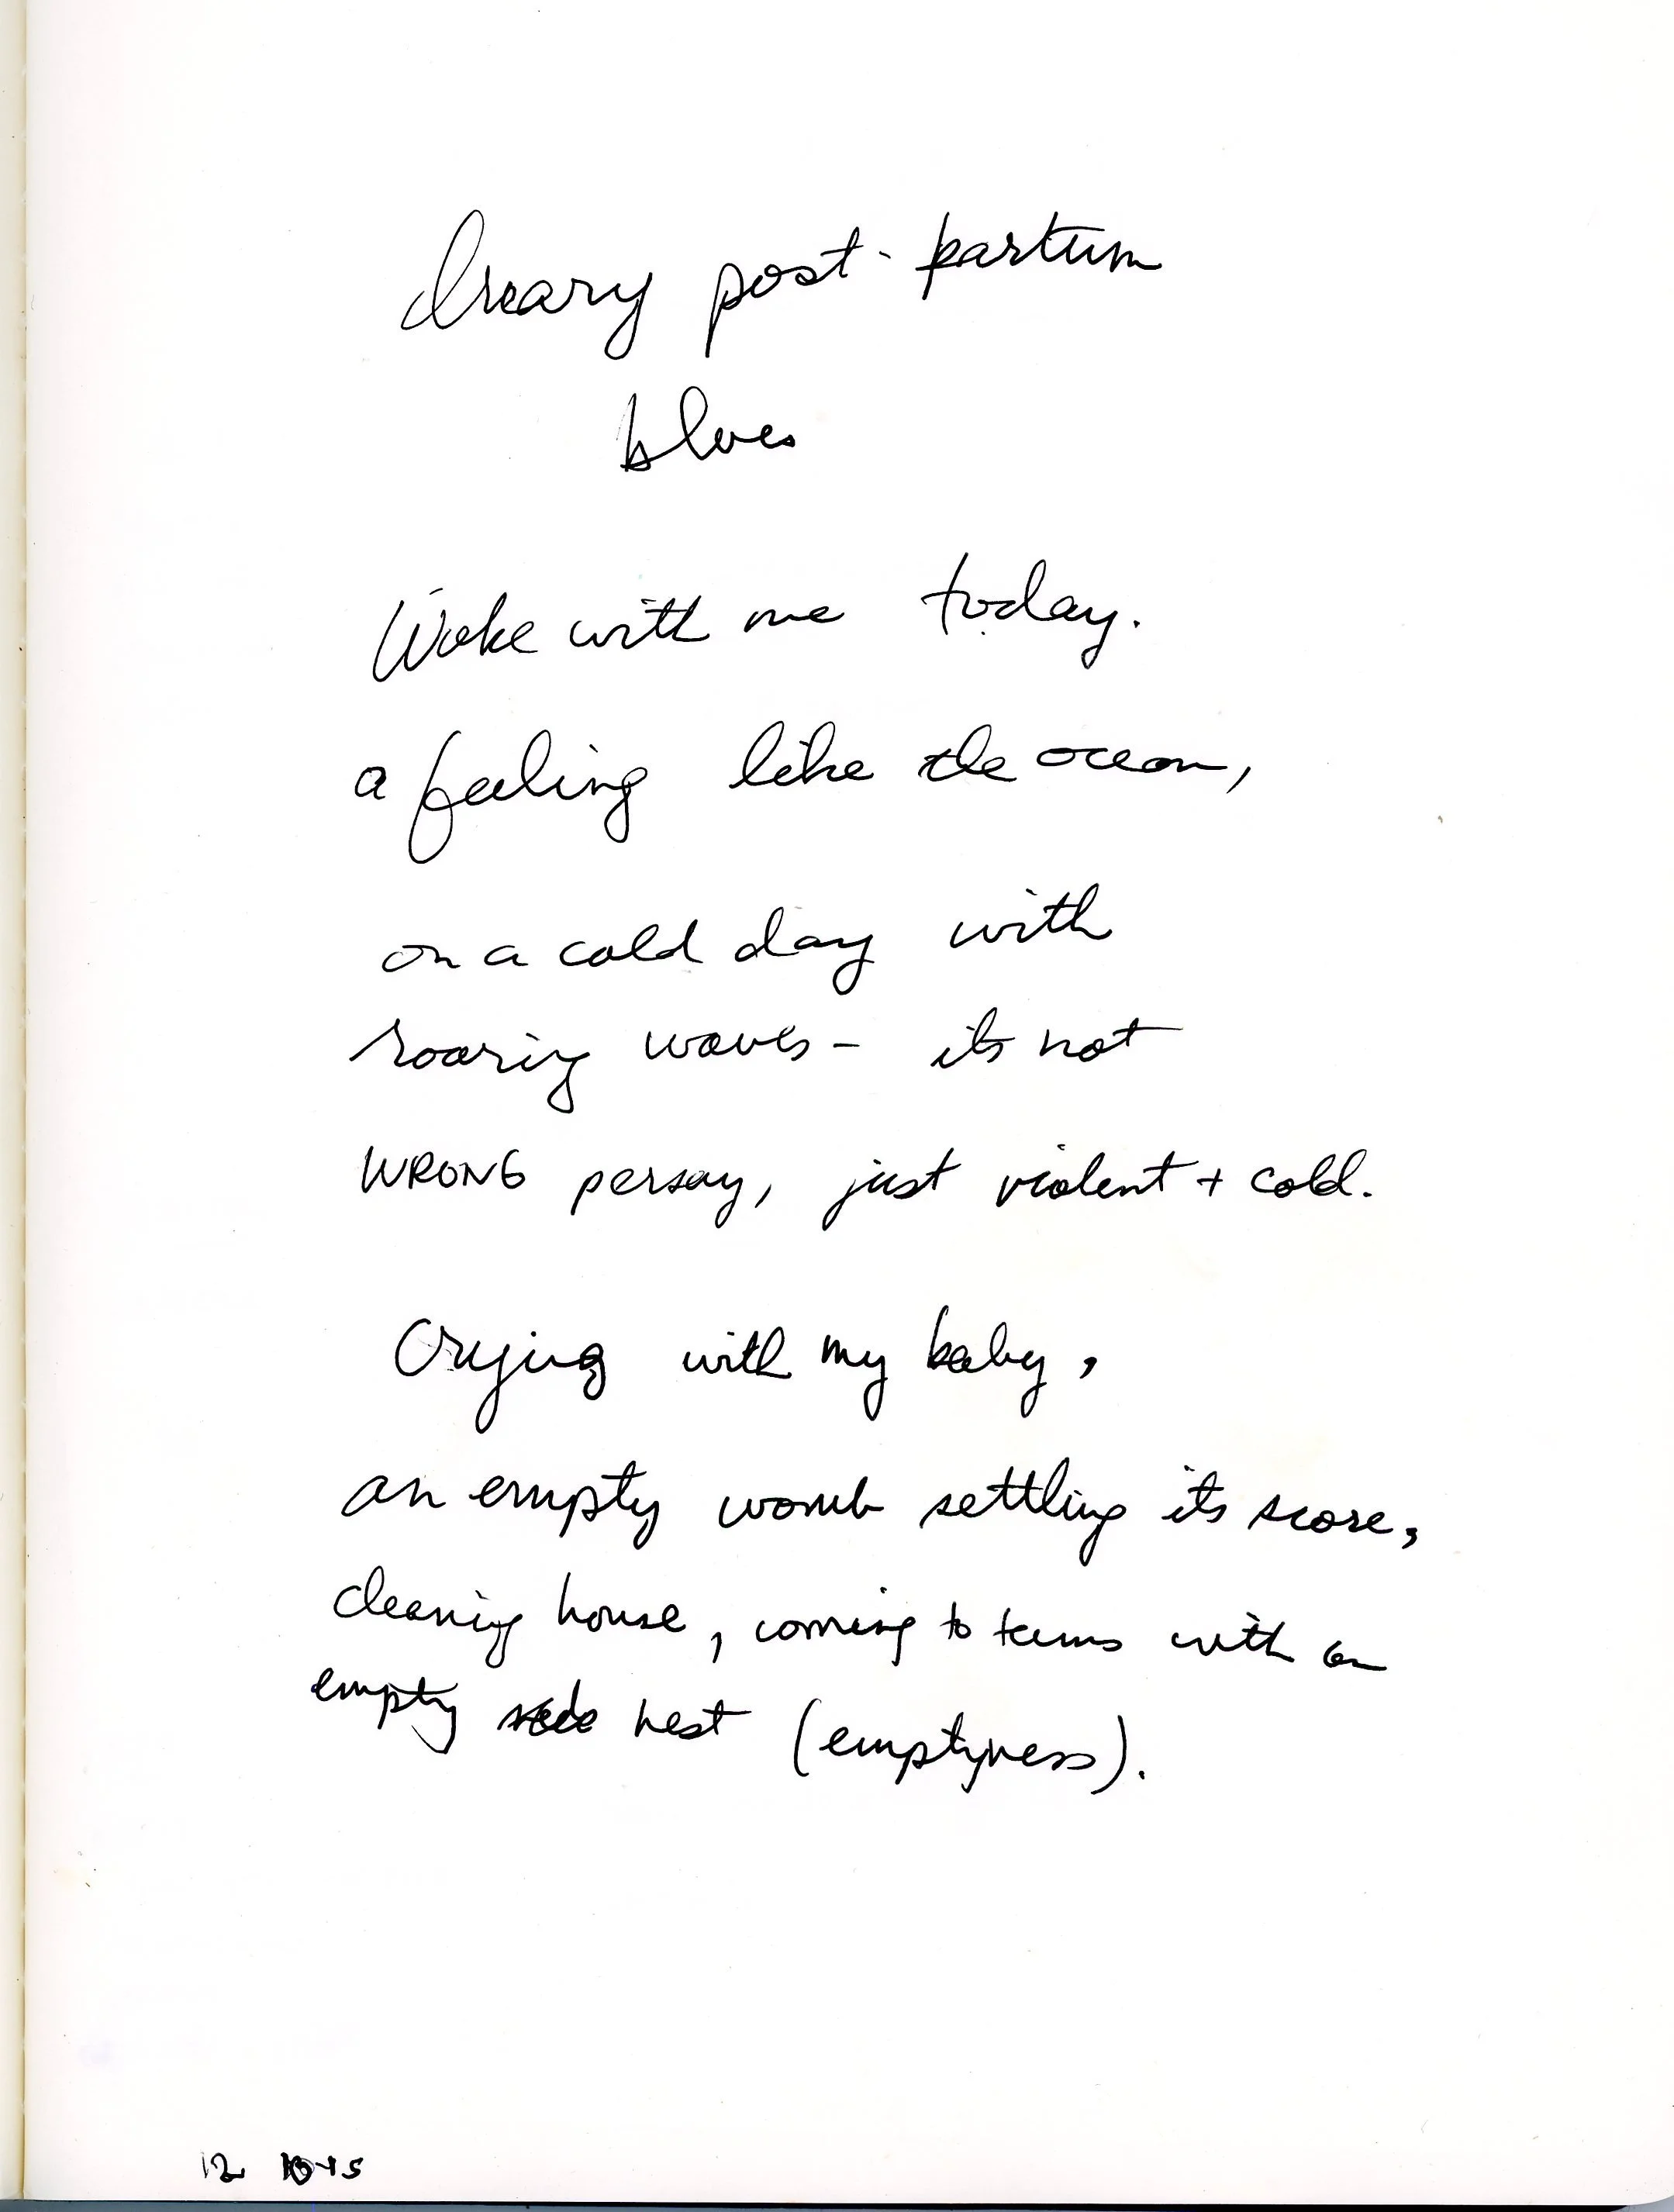 dreary post-partum
blues
Woke with me today.
a feeling like the ocean,
on a cold day with
roaring waves - its not
WRONG persay, just violent + cold.
Crying with my baby,
an empty womb settling its score,
cleaning house, coming to terms with an
empty nest (emptyness).
12